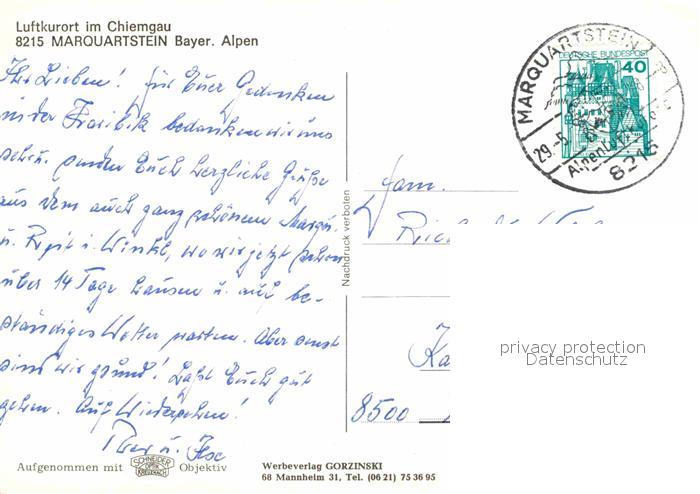 Luftkurort im Chiemgau
8215 MARQUARTSTEIN Bayer. Alpen
Ihr Lieben! Für Euer Gedenken
in der Karibik bedanken wir uns
sehr u. senden Euch herzliche Grüße
aus dem auch ganz schönem Marqu.
u. i. Winkl, wo wir jetzt schon
über 14 Tage hausen u. auf be-
ständiges Wetter warten. Aber sonst
sind wir gesund! Laßt Euch gut
gehen. Auf Wiedersehen!
u. Ilse
Aufgenommen mit SCHNEIDER OPTIK KREUZNACH Objektiv
Werbeverlag GORZINSKI
68 Mannheim 31, Tel. (06 21) 75 36 95
Nachdruck verboten
DEUTSCHE BUNDESPOST
40
MARQUARTSTEIN
29.-5.
8215
Fam.
8500
privacy protection
Datenschutz